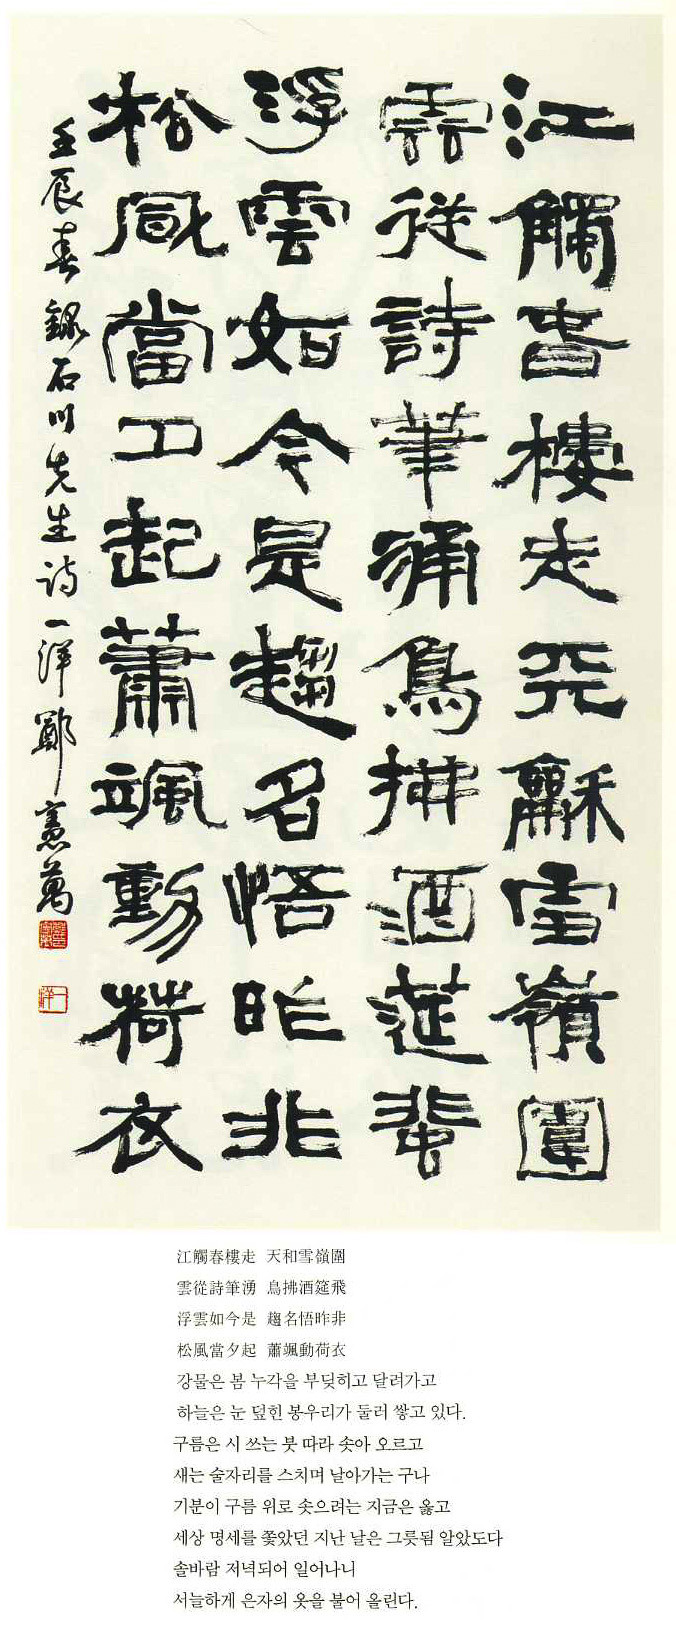 江觸春樓走天和雪嶺圍
雲從詩筆湧鳥拂酒筵飛
浮雲如今是趨名悟昨非
松風當夕起蕭颯動荷衣
壬辰春錄石川先生詩一洋鄭憲萬
江觸春樓走 天和雪嶺圍
雲從詩筆湧 鳥拂酒筵飛
浮雲如今是 趨名悟昨非
松風當夕起 蕭颯動荷衣
강물은 봄 누각을 부딪히고 달려가고
하늘은 눈 덮힌 봉우리가 둘러 쌓고 있다.
구름은 시 쓰는 붓 따라 솟아 오르고
새는 술자리를 스치며 날아가는 구나
기분이 구름 위로 솟으려는 지금은 옳고
세상 명세를 쫓았던 지난 날은 그릇됨 알았도다
솔바람 저녁되어 일어나니
서늘하게 은자의 옷을 불어 올린다.